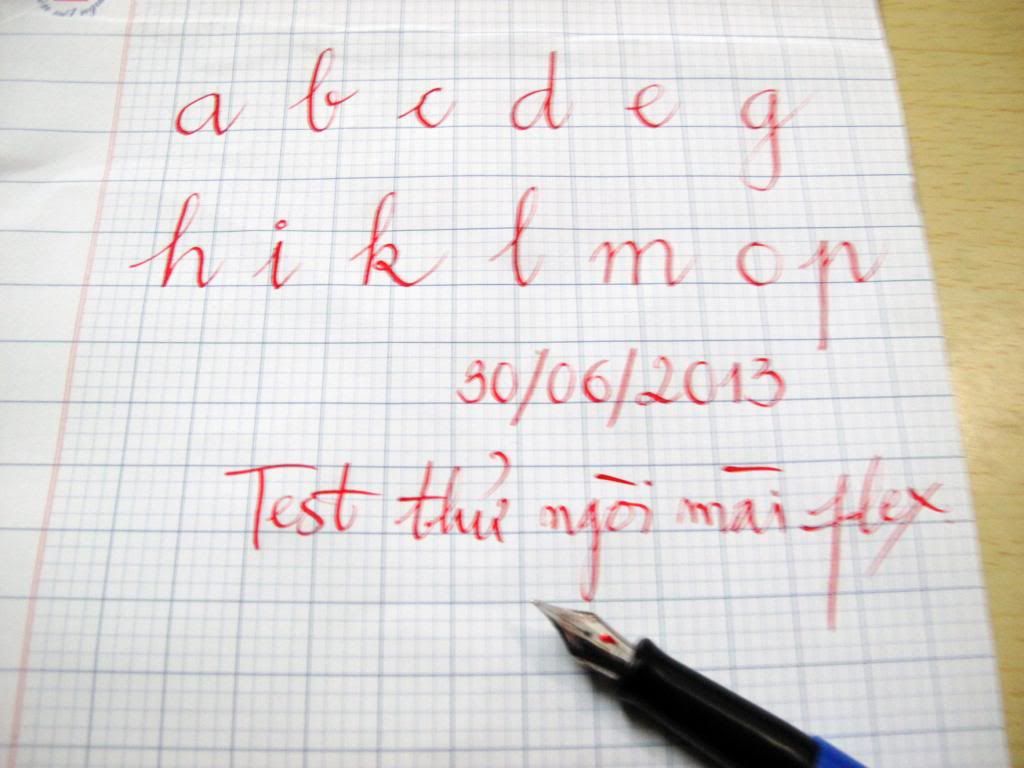 a b c d e g
h i k l m o p
30/06/2013
Test thử ngòi mài flex.